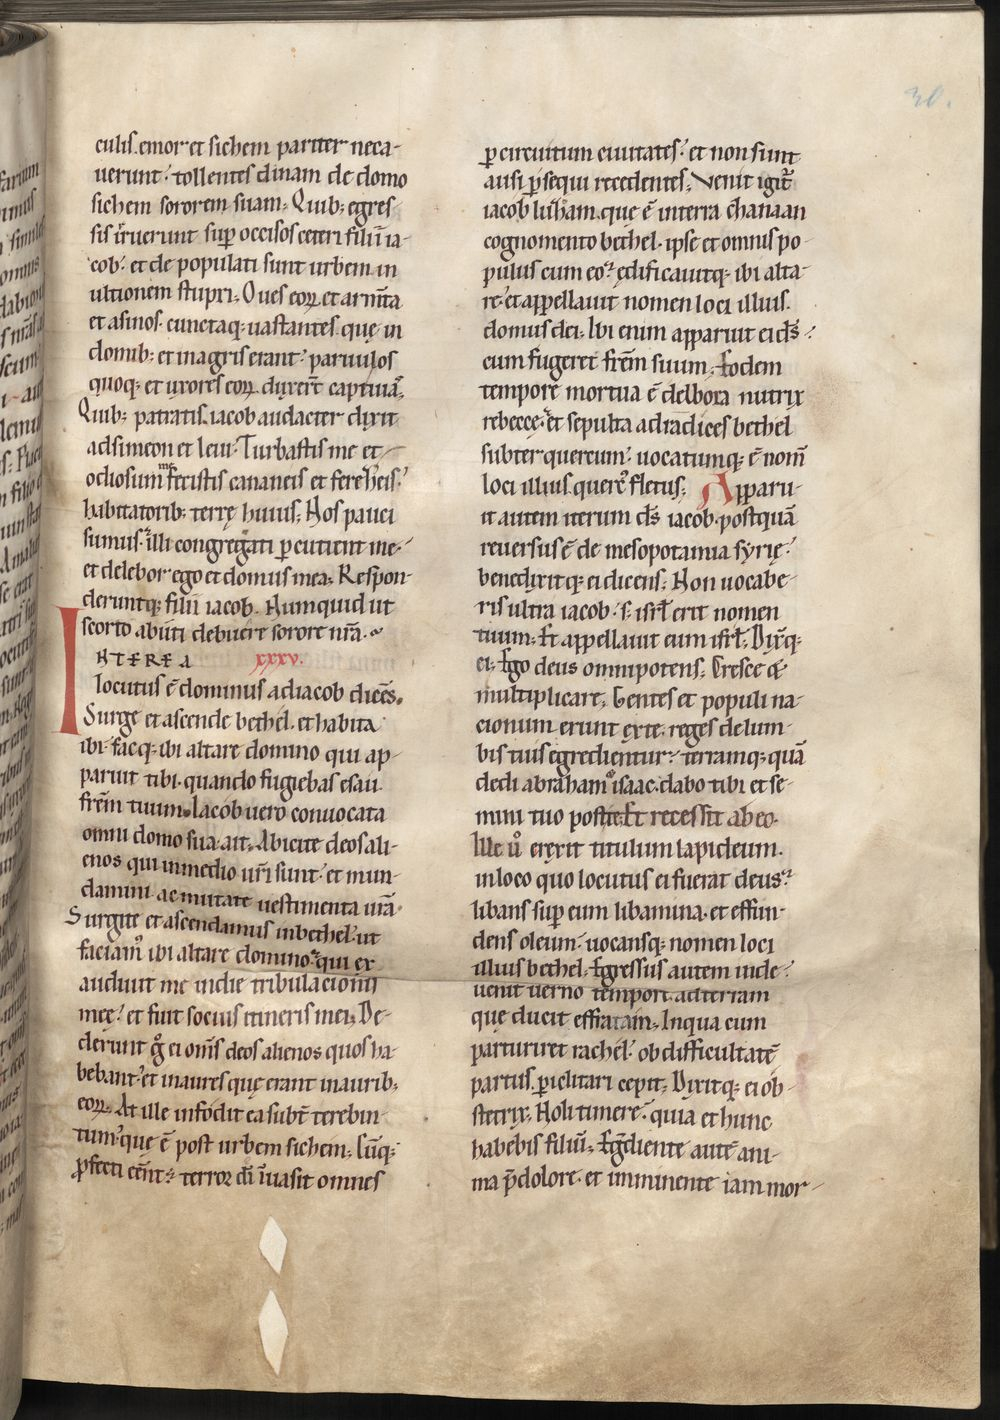 30.
culis. emor et sichem pariter neca-
uerunt. tollentes dinam de domo
sichem sororem suam; Quib; egres-
sis irruerunt sup̄ occisos ceteri filii ia-
cob. et de populati sunt urbem in
ultionem stupri; Oues eoꝝ et armta
et asinos. cunctaq; uastantes que in
domib; et in agris erant. paruulos
quoq; et uxores eoꝝ duxert̄ captiuā;
Quib; patratis. iacob audacter dixit
ad simeon et leui. Turbastis me et
odiosum fecistis cananeis et fereheis.
habitatorib; terrę huius; Nos pauci
sumus. illi congregati ꝑcutient me.
et delebor ego et domus mea; Respon-
deruntq; filii iacob. Numquid ut
scorto abuti debuere sorore nr̄a.
INTEREA xxxv.
locutus ē dominus ad iacob dicēs.
Surge et ascende bethel. et habita
ibi. facq; ibi altare domino qui ap-
paruit tibi. quando fugiebas esau
frēm tuum. Iacob uero conuocata
omni domo sua. ait. Abicite deos ali-
enos qui in medio ur̄i sunt. et mun-
damini ac mutate uestimenta ur̄a.
Surgite et ascendamus in bethel. ut
faciam᷒ ibi altare domino. qui ex
audiuit me in die tribulacionis
meę. et fuit socius itineris mei; De-
derunt ḡ ei om̄s deos alienos quos ha-
bebant. et inaures que erant in aurib;
eoꝝ. At ille infodit ea subt̄ terebin-
tum. que ē post urbem sichem; Cūq;
ꝓfecti eēnt. terror dī inuasit omnes
ꝑ circuitum ciuitates. et non sunt
ausi ꝑsequi recedentes; Venit igit̄
iacob luzam. que ē in terra chanaan
cognomento bethel. ipse et omnis po-
pulus cum eo. ędificauitq; ibi alta-
re. et appellauit nomen loci illius.
domus dei; Ibi enim apparuit ei ds̄.
cum fugeret frēm suum; Eodem
tempore mortua ē delbora nutrix
rebecce. et sepulta ad radices bethel
subter quercum. uocatumq; ē nom̄
loci illius. querc᷒ fletus; Apparu-
it autem iterum ds̄ iacob. postquā
reuersus ē de mesopotamia syrię.
benedixitq; ei dicens; Non uocabe-
ris ultra iacob. s; isrl̄ erit nomen
tuum; Et appellauit eum isrl̄. Dixitq;
ei; Ego deus omnipotens; Cresce &
multiplicare; Gentes et populi na-
cionum erunt ex te. reges de lum-
bis tuis egredientur. terramq; quā
dedi abraham et isaac. dabo tibi et se-
mini tuo post te; Et recessit ab eo.
Ille u᷒ erexit titulum lapideum.
in loco quo locutus ei fuerat deus.
libans sup̄ eum libamina. et effun-
dens oleum. uocansq; nomen loci
illius bethel; Egressus autem inde.
uenit uerno tempore. ad terram
que ducit effratam; In qua cum
parturiret rachel. ob difficultatē
partus. ꝑiclitari cepit; Dixitq; ei ob-
stetrix; Noli timere. quia et hunc
habebis filiū; Egrediente autē ani-
ma p̄ dolore. et imminente iam mor-